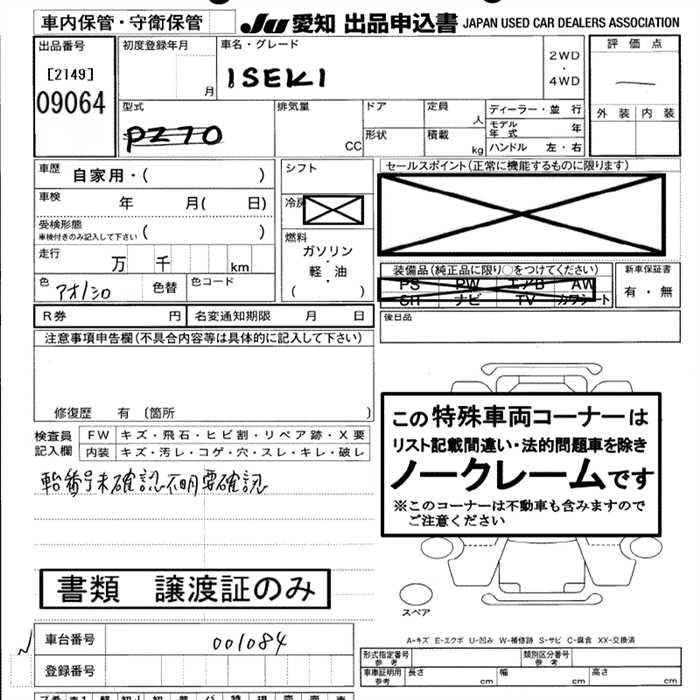 車内保管・守衛保管
JU 愛知 出品申込書 JAPAN USED CAR DEALERS ASSOCIATION
出品番号
[2149]
09064
初度登録年月
月
車名・グレード
ISEKI
2WD
・
4WD
評価点
外装 内装
型式
PZ70
排気量
CC
ドア
形状
定員
人
積載
kg
ディーラー・並行
モデル年式 年
ハンドル 左・右
車歴
自家用・( )
車検 年 月( 日)
受検形態
車検付きのみ記入して下さい ( )
走行 万 千 km
色 アオ/シロ 色替 色コード
シフト
冷房
燃料
ガソリン
・
軽・油
( )
セールスポイント(正常に機能するものに限ります)
装備品(純正品に限り○をつけてください)
PS PW エアB AW
SR ナビ TV カワシート
新車保証書
有・無
R券 円 名変通知期限 月 日
後日品
注意事項申告欄(不具合内容等は具体的に記入して下さい)
修復歴 有 〔箇所 〕
検査員記入欄
FW キズ・飛石・ヒビ割・リペア跡・X要
内装 キズ・汚レ・コゲ・穴・スレ・キレ・破レ
この特殊車両コーナーは
リスト記載間違い・法的問題車を除き
ノークレームです
※このコーナーは不動車も含みますので
ご注意ください
車台番号未確認不明要確認
書類 譲渡証のみ
スペア
A-キズ E-エクボ U-凹み W-補修跡 S-サビ C-腐食 XX-交換済
車台番号 001084
登録番号
型式指定番号
参考
類別区分番号
参考
車庫証明用
参考
長さ cm 幅 cm 高さ cm